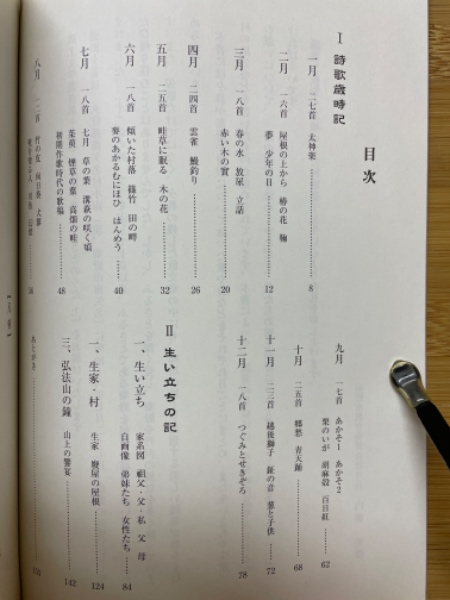 目次
I 詩歌歳時記
一月 二七首 太神楽 …… 8
二月 一六首 屋根の上から 椿の花 鞠
夢 少年の日 …… 12
三月 一八首 春の水 放屎 立話
赤い木の實 …… 20
四月 二四首 雲雀 鰻釣り …… 26
五月 二五首 畦草に眠る 木の花 …… 32
六月 一八首 傾いた村落 篠竹 田の畔
麥のあかるむにほひ はんめう …… 40
七月 一八首 七月 草の葉 溝萩の咲く頃
茱萸 煙草の葉 高畑の畦
初期作歌時代の歌稿 …… 48
八月 二二首 竹の皮 向日葵
56
九月 一七首 あかそ1 あかそ2
栗のいが 胡麻殻 百日紅 …… 62
十月 二五首 郷愁 青天踊 …… 68
十一月 二三首 越後獅子 鉦の音 葱と子供 …… 72
十二月 一八首 つぐみとせきぞろ …… 78
II 生い立ちの記
一、生い立ち 家系図 祖父・父・私 父 母
自画像 弟妹たち 女性たち …… 84
一、生家・村 生家 廢屋の屋根 …… 124
三、弘法山の鐘 山上の饗宴 …… 142
あとがき